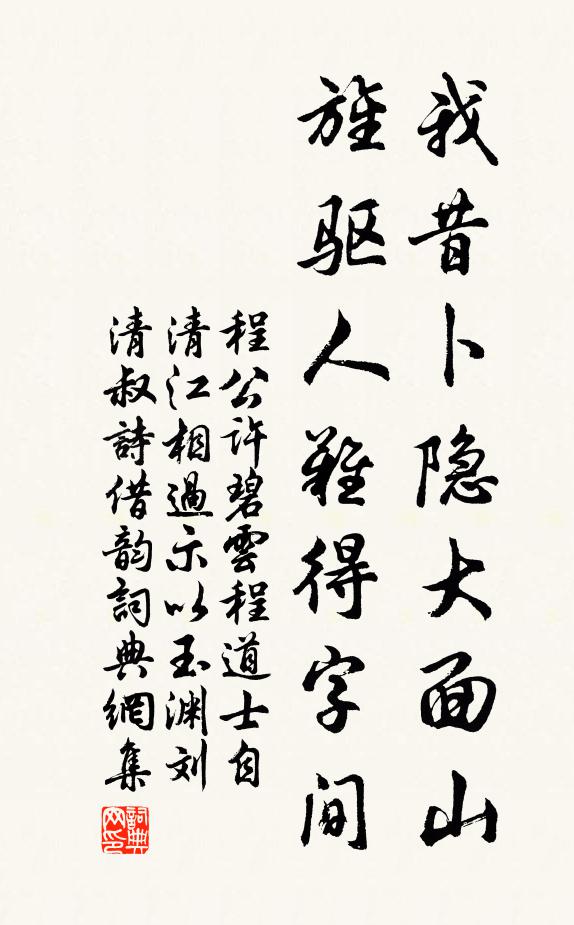 我昔卜隐大面山
旌驱人难得字间
程公许碧雲程道士自
清江相過示以玉渊刘
清叔詩借韵詞典網集
詞典网印